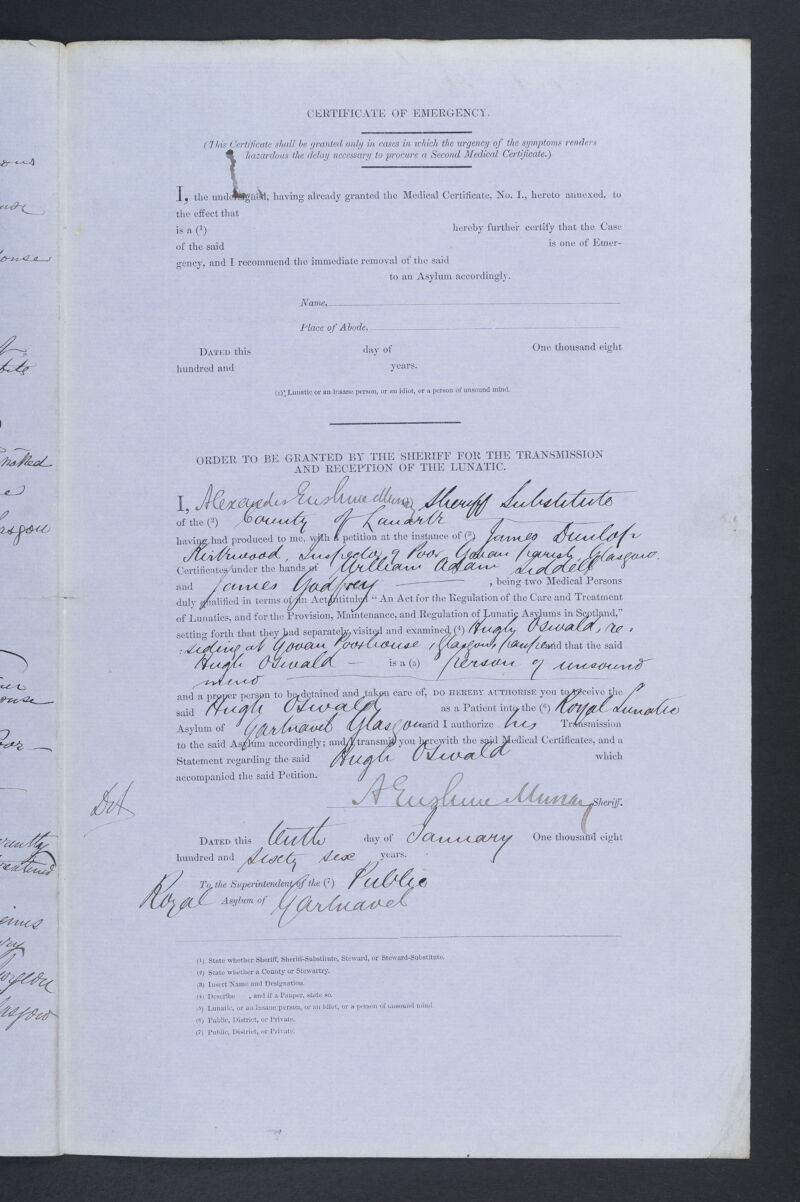 CERTIFICATE OF EMERGENCY.
(This Certificate shall be granted only in cases in which the urgency of the symptoms renders
hazardous the delay necessary to procure a Second Medical Certificate.)
I, the undersigned, having already granted the Medical Certificate, No. I., hereto annexed, to
the effect that
is a (1) hereby further certify that the Case
of the said is one of Emer-
gency, and I recommend the immediate removal of the said
to an Asylum accordingly.
Name,
Place of Abode,
DATED this day of One thousand eight
hundred and years.
(1) Lunatic or an insane person, or an idiot, or a person of unsound mind.
ORDER TO BE GRANTED BY THE SHERIFF FOR THE TRANSMISSION
AND RECEPTION OF THE LUNATIC.
I, Alexander Erskine Murray Sheriff Substitute
of the (2) County of Lanark
having had produced to me, with a petition at the instance of (3) James Dunlop
Kirkwood, Inspector of Poor Govan parish, Glasgow
Certificates under the hands of William Adam Liddell
and James Godfrey, being two Medical Persons
duly qualified in terms of an Act intituled "An Act for the Regulation of the Care and Treatment
of Lunatics, and for the Provision, Maintenance, and Regulation of Lunatic Asylums in Scotland,"
setting forth that they had separately visited and examined (4) Hugh Oswald, re:
:siding at Govan Poorhouse, Glasgow, pauper and that the said
Hugh Oswald is a (5) person of unsound
mind
and a proper person to be detained and taken care of, DO HEREBY AUTHORISE you to receive the
said Hugh Oswald as a Patient into the (6) Royal Lunatic
Asylum of Gartnavel Glasgow and I authorize his Transmission
to the said Asylum accordingly; and I transmit you herewith the said Medical Certificates, and a
Statement regarding the said Hugh Oswald which
accompanied the said Petition.
A Erskine Murray Sheriff.
DATED this tenth day of January One thousand eight
hundred and sixty six years.
To the Superintendent of the (7) Public
Royal Asylum of Gartnavel
(1) State whether Sheriff, Sheriff-Substitute, Steward, or Steward-Substitute.
(2) State whether a County or Stewartry.
(3) Insert Name and Designation.
(4) Describe , and if a Pauper, state so.
(5) Lunatic, or an insane person, or an idiot, or a person of unsound mind.
(6) Public, District, or Private.
(7) Public, District, or Private.